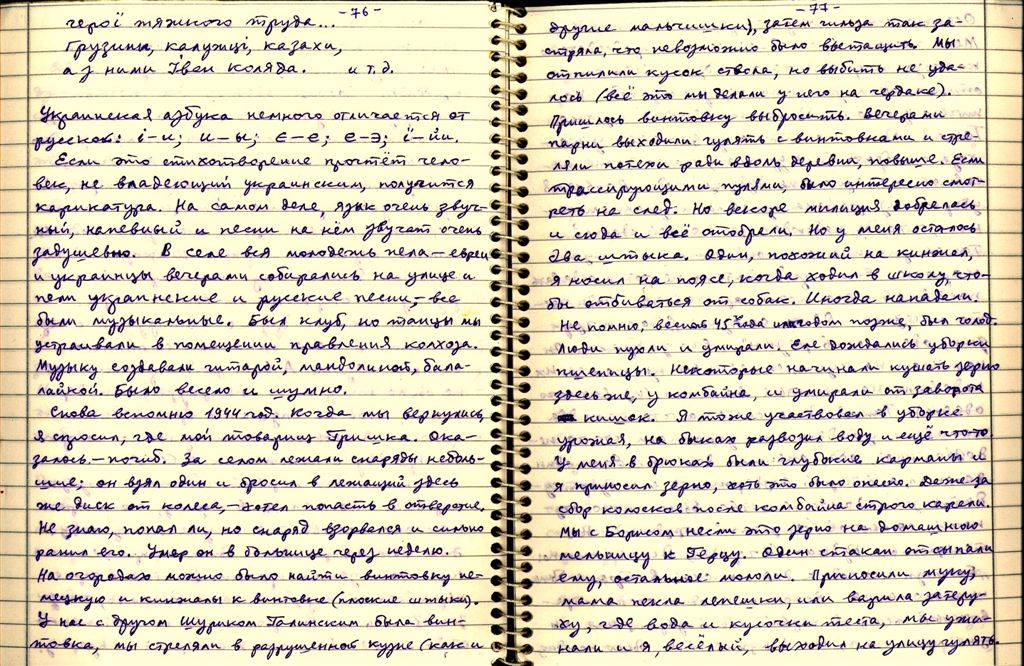 -76-
герої тяжкого труда...
грузини, калужці, казахи,
а з ними Іван Коляда. и т.д.
Украинская азбука немного отличается от
русской: і-и; и-ы; є-е; е-э; ї-йи.
Если это стихотворение прочтёт чело-
век, не владеющий украинским, получится
карикатура. На самом деле, язык очень звуч-
ный, напевный и песни на нём звучат очень
задушевно. В селе вся молодежь пела - евреи
и украинцы вечерами собирались на улице и
пели украинские и русские песни, - все
были музыкальные. Был клуб, но танцы мы
устраивали в помещении правления колхоза.
Музыку создавали гитарой, мандолиной, бала-
лайкой. Было весело и шумно.
Снова вспомню 1944 год. Когда мы вернулись,
я спросил, где мой товарищ Гришка. Ока-
залось - погиб. За селом лежали снаряды неболь-
шие; он взял один и бросил в лежащий здесь
же диск от колеса, - хотел попасть в отверстие.
Не знаю, попал ли, но снаряд взорвался и сильно
ранил его. Умер он в больнице через неделю.
На огородах можно было найти винтовку не-
мецкую и кинжалы к винтовке (плоские штыки).
У нас с другом Шуриком Галинским была вин-
товка, мы стреляли в разрушенной кузне (как и
-77-
другие мальчишки), затем гильза так за-
стряла, что невозможно было вытащить. Мы
отпилили кусок ствола, но выбить не уда-
лось (всё это мы делали у него на чердаке).
Пришлось винтовку выбросить. Вечерами
парни выходили гулять с винтовками и стре-
ляли потехи ради вдоль деревни, повыше. Если
трассирующими пулями, было интересно смот-
реть на след. Но вскоре милиция добралась
и сюда и всё отобрали. Но у меня осталось
два штыка. Один, похожий на кинжал,
я носил на поясе, когда ходил в школу, что-
бы отбиваться от собак. Иногда нападали.
Не помню, весной 45го года или годом позже, был голод.
Люди пухли и умирали. Еле дождались уборки
пшеницы. Некоторые начинали кушать зерно
здесь же, у комбайна, и умирали от заворота
кишок. Я тоже участвовал в уборке
урожая, на быках развозил воду и ещё что-то
У меня в брюках были глубокие карманы и
я приносил зерно, хоть это было опасно. Даже за
сбор колосков после комбайна строго карали.
Мы с Борисом несли это зерно на домашнюю
мельницу к Герцу. Один стакан отсыпали
ему, остальное мололи. Приносили муку,
мама пекла лепешки, или варила затеру-
ху, где вода и кусочки теста, мы ужи-
нали и я, весёлый, выходил на улицу гулять.